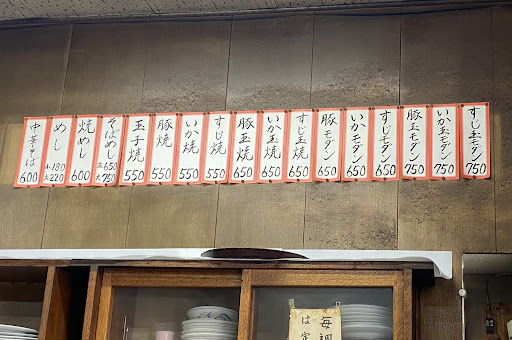 すじ玉モダン 750
いか玉モダン 750
豚玉モダン 750
すじモダン 650
いかモダン 650
豚モダン 650
すじ玉焼 650
いか玉焼 650
豚玉焼 650
すじ焼 550
いか焼 550
豚焼 550
玉子焼 550
そばめし 小650 大750
焼めし 600
めし 小180 大220
中華そば 600
毎週
は定